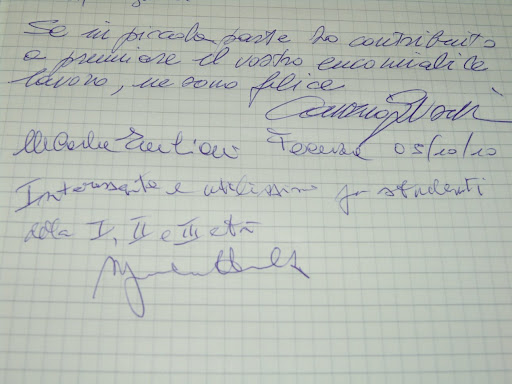 Se in piccola parte ho contribuito
a premiare il vostro encomiabile
lavoro, ne sono felice
05/10/10
Interessante e utilissimo per studenti
della I, II e III età